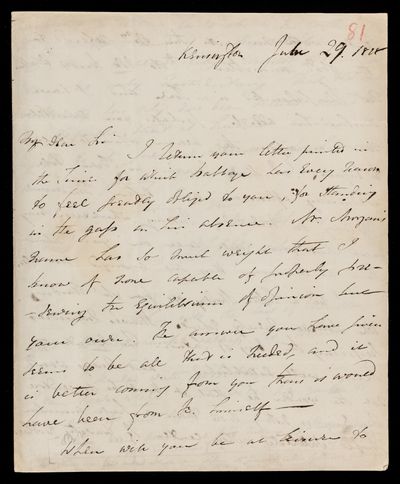 81
Kensington July 29. 18
My Dear Sir
I return your letter printed in
the Times for which Babbage has every reason
to feel greatly obliged to you, for standing
in the gap in his absence. Mr.
name has so much weight that I
know of none capable of properly pre-
-serving the Equilibrium of opinion but
your own. The answer you have given
seems to be all that is needed, and it
is better coming from you than it would
have been from h. himself —
When will you be at leisure to